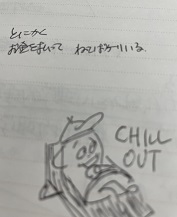 とにかく
お金を払って ねてばかりいる
CHILL
OUT